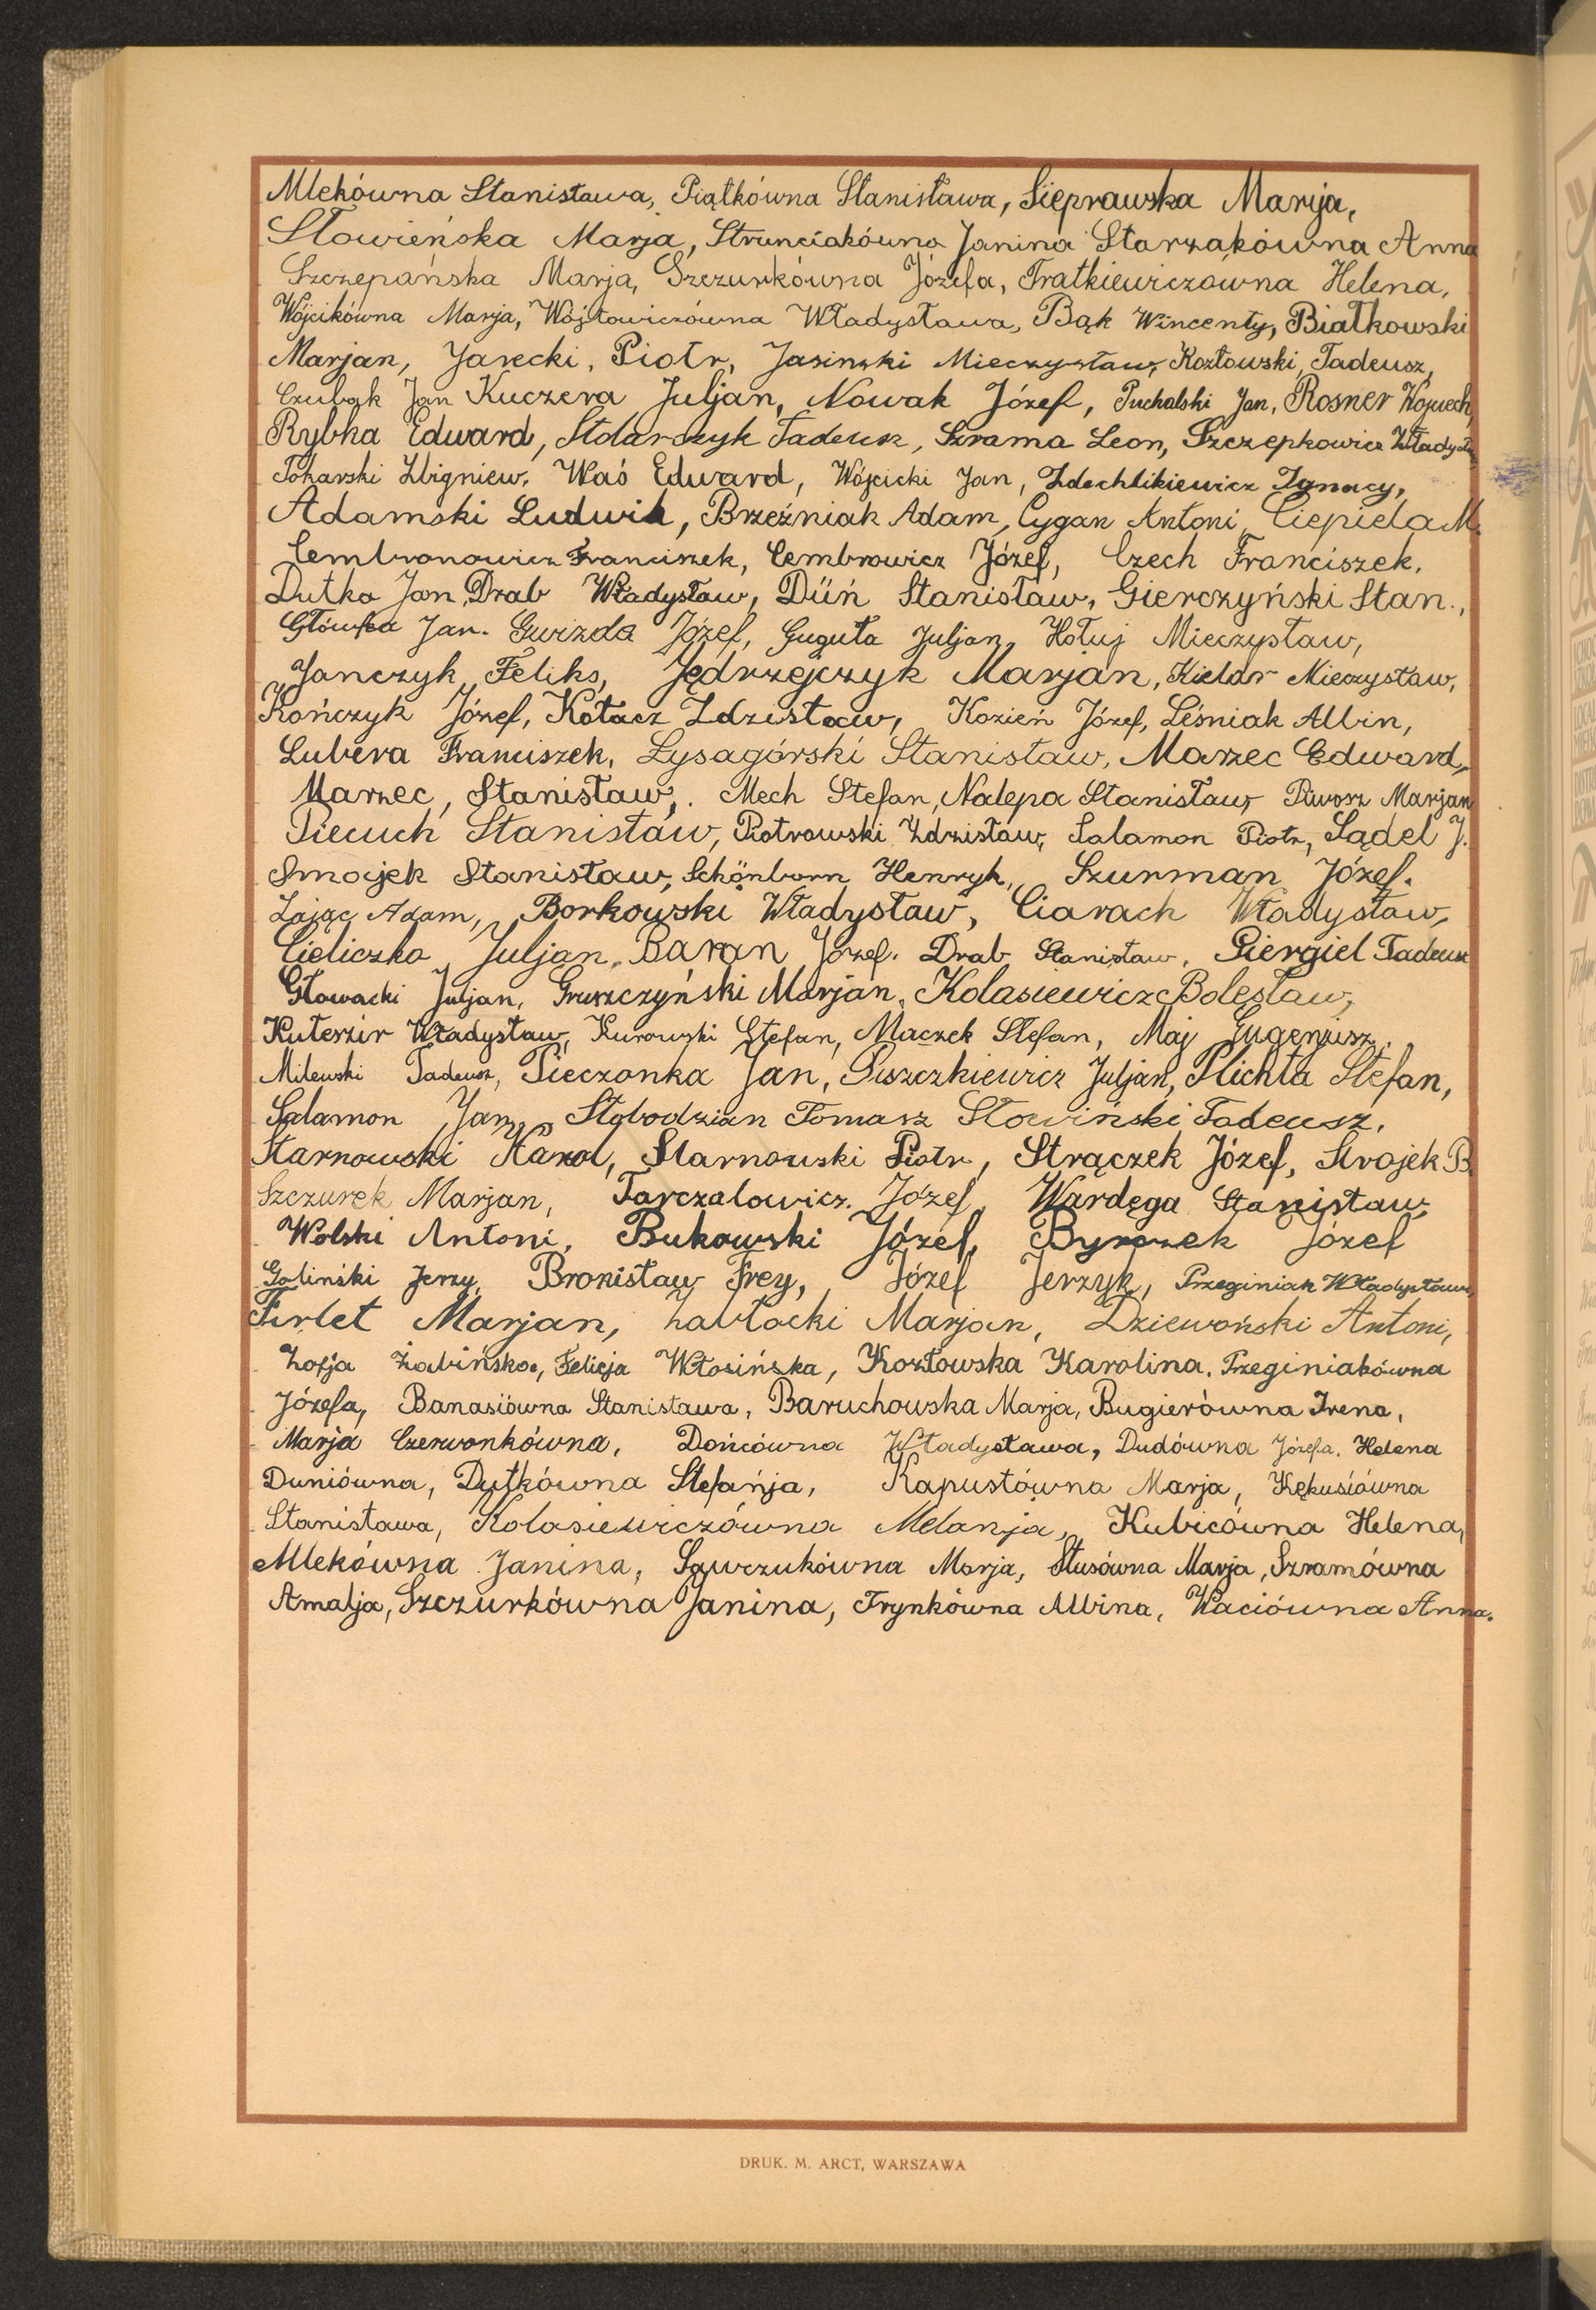 Mlekówna Stanisława, Piątkówna Stanisława, Sieprawska Marija,
Słowieńska Marja, Strunciakówna Janina Starzakówna Anna
Szczepańska Marja, Szczurkówna Józefa, Tratkiewiczówna Helena,
Wójcikówna Marja, Wójtowiczówna Władysława, Bąk Wincenty, Białkowski
Marjan, Jarecki, Piotr, Jasinski Mieczysław, Kozłowski, Tadeusz,
Czubak Jan Kuczera Juljan, Nowak Józef, Puchalski Jan, Rosner Wojciech,
Rybka Edward, Stolarczyk Tadeusz, Szrama Leon, Szczepkowicz Władysław
Tokarski Zbigniew, Waś Edward, Wójcicki Jan, Zdechlikiewicz Ignacy,
Adamski Ludwik, Brzeźniak Adam, Cygan Antoni, Ciepiela M.
Cembronowicz Franciszek, Cembrowicz Józef, Czech Franciszek,
Dutka Jan, Drab Władysław, Düń Stanisław, Gierczyński Stan.,
Główka Jan. Gwizda Józef, Guguła Juljan, Hołuj Mieczysław,
Janczyk Feliks, Jędrzejczyk Marjan, Kieldr Mieczysław,
Kończyk Józef, Kołacz Zdzisław, Kozień Józef, Leśniak Albin,
Lubera Franciszek, Łysagórski Stanisław, Marzec Edward,
Marzec, Stanisław, Mech Stefan, Nalepa Stanisław, Piwosz Marjan
Piecuch Stanisław, Piotrowski Zdzisław, Salamon Piotr, Sądel J.
Smajek Stanisław, Schönborn Henryk, Szurman Józef.
Zając Adam, Borkowski Władysław, Ciarach Władysław,
Cieliczko Juljan, Baran Józef. Drab Stanisław, Giergiel Tadeusz
Głowacki Juljan, Gruszczyński Marjan, Kolasiewicz Bolesław,
Kuteszir Władysław, Kurowski Stefan, Maczek Stefan, Maj Eugenjusz,
Milewski Tadeusz, Pieczonka Jan, Piszczkiewicz Juljan, Plichta Stefan,
Salamon Jan, Słobodzian Tomasz Słowiński Tadeusz,
Starnowski Karol, Starnowski Piotr, Strączek Józef, Strojek B.
Szczurek Marjan, Tarczalowicz Józef, Wardęga Stanisław,
Wolski Antoni, Bukowski Józef, Byrczek Józef
Goliński Jerzy, Bronisław Frey, Józef Jerzyk, Przeginiak Władysław,
Firlet Marjan, Zawłocki Marjan, Dziewoński Antoni,
Zofja Żabińska, Felicja Włosińska, Kozłowska Karolina, Przeginiakówna
Józefa, Banasiówna Stanisława, Baruchowska Marja, Bugierówna Irena,
Marja Czerwonkówna, Dońcówna Władysława, Dudówna Józefa, Helena
Duniówna, Dutkówna Stefanja, Kapustówna Marja, Kękusiówna
Stanisława, Kolasiewiczówna Melanja, Kubicówna Helena,
Mlekówna Janina, Sawczukówna Marja, Stusówna Marja, Szramówna
Amalja, Szczurkówna Janina, Trynkówna Albina, Waciówna Anna.
DRUK. M. ARCT, WARSZAWA